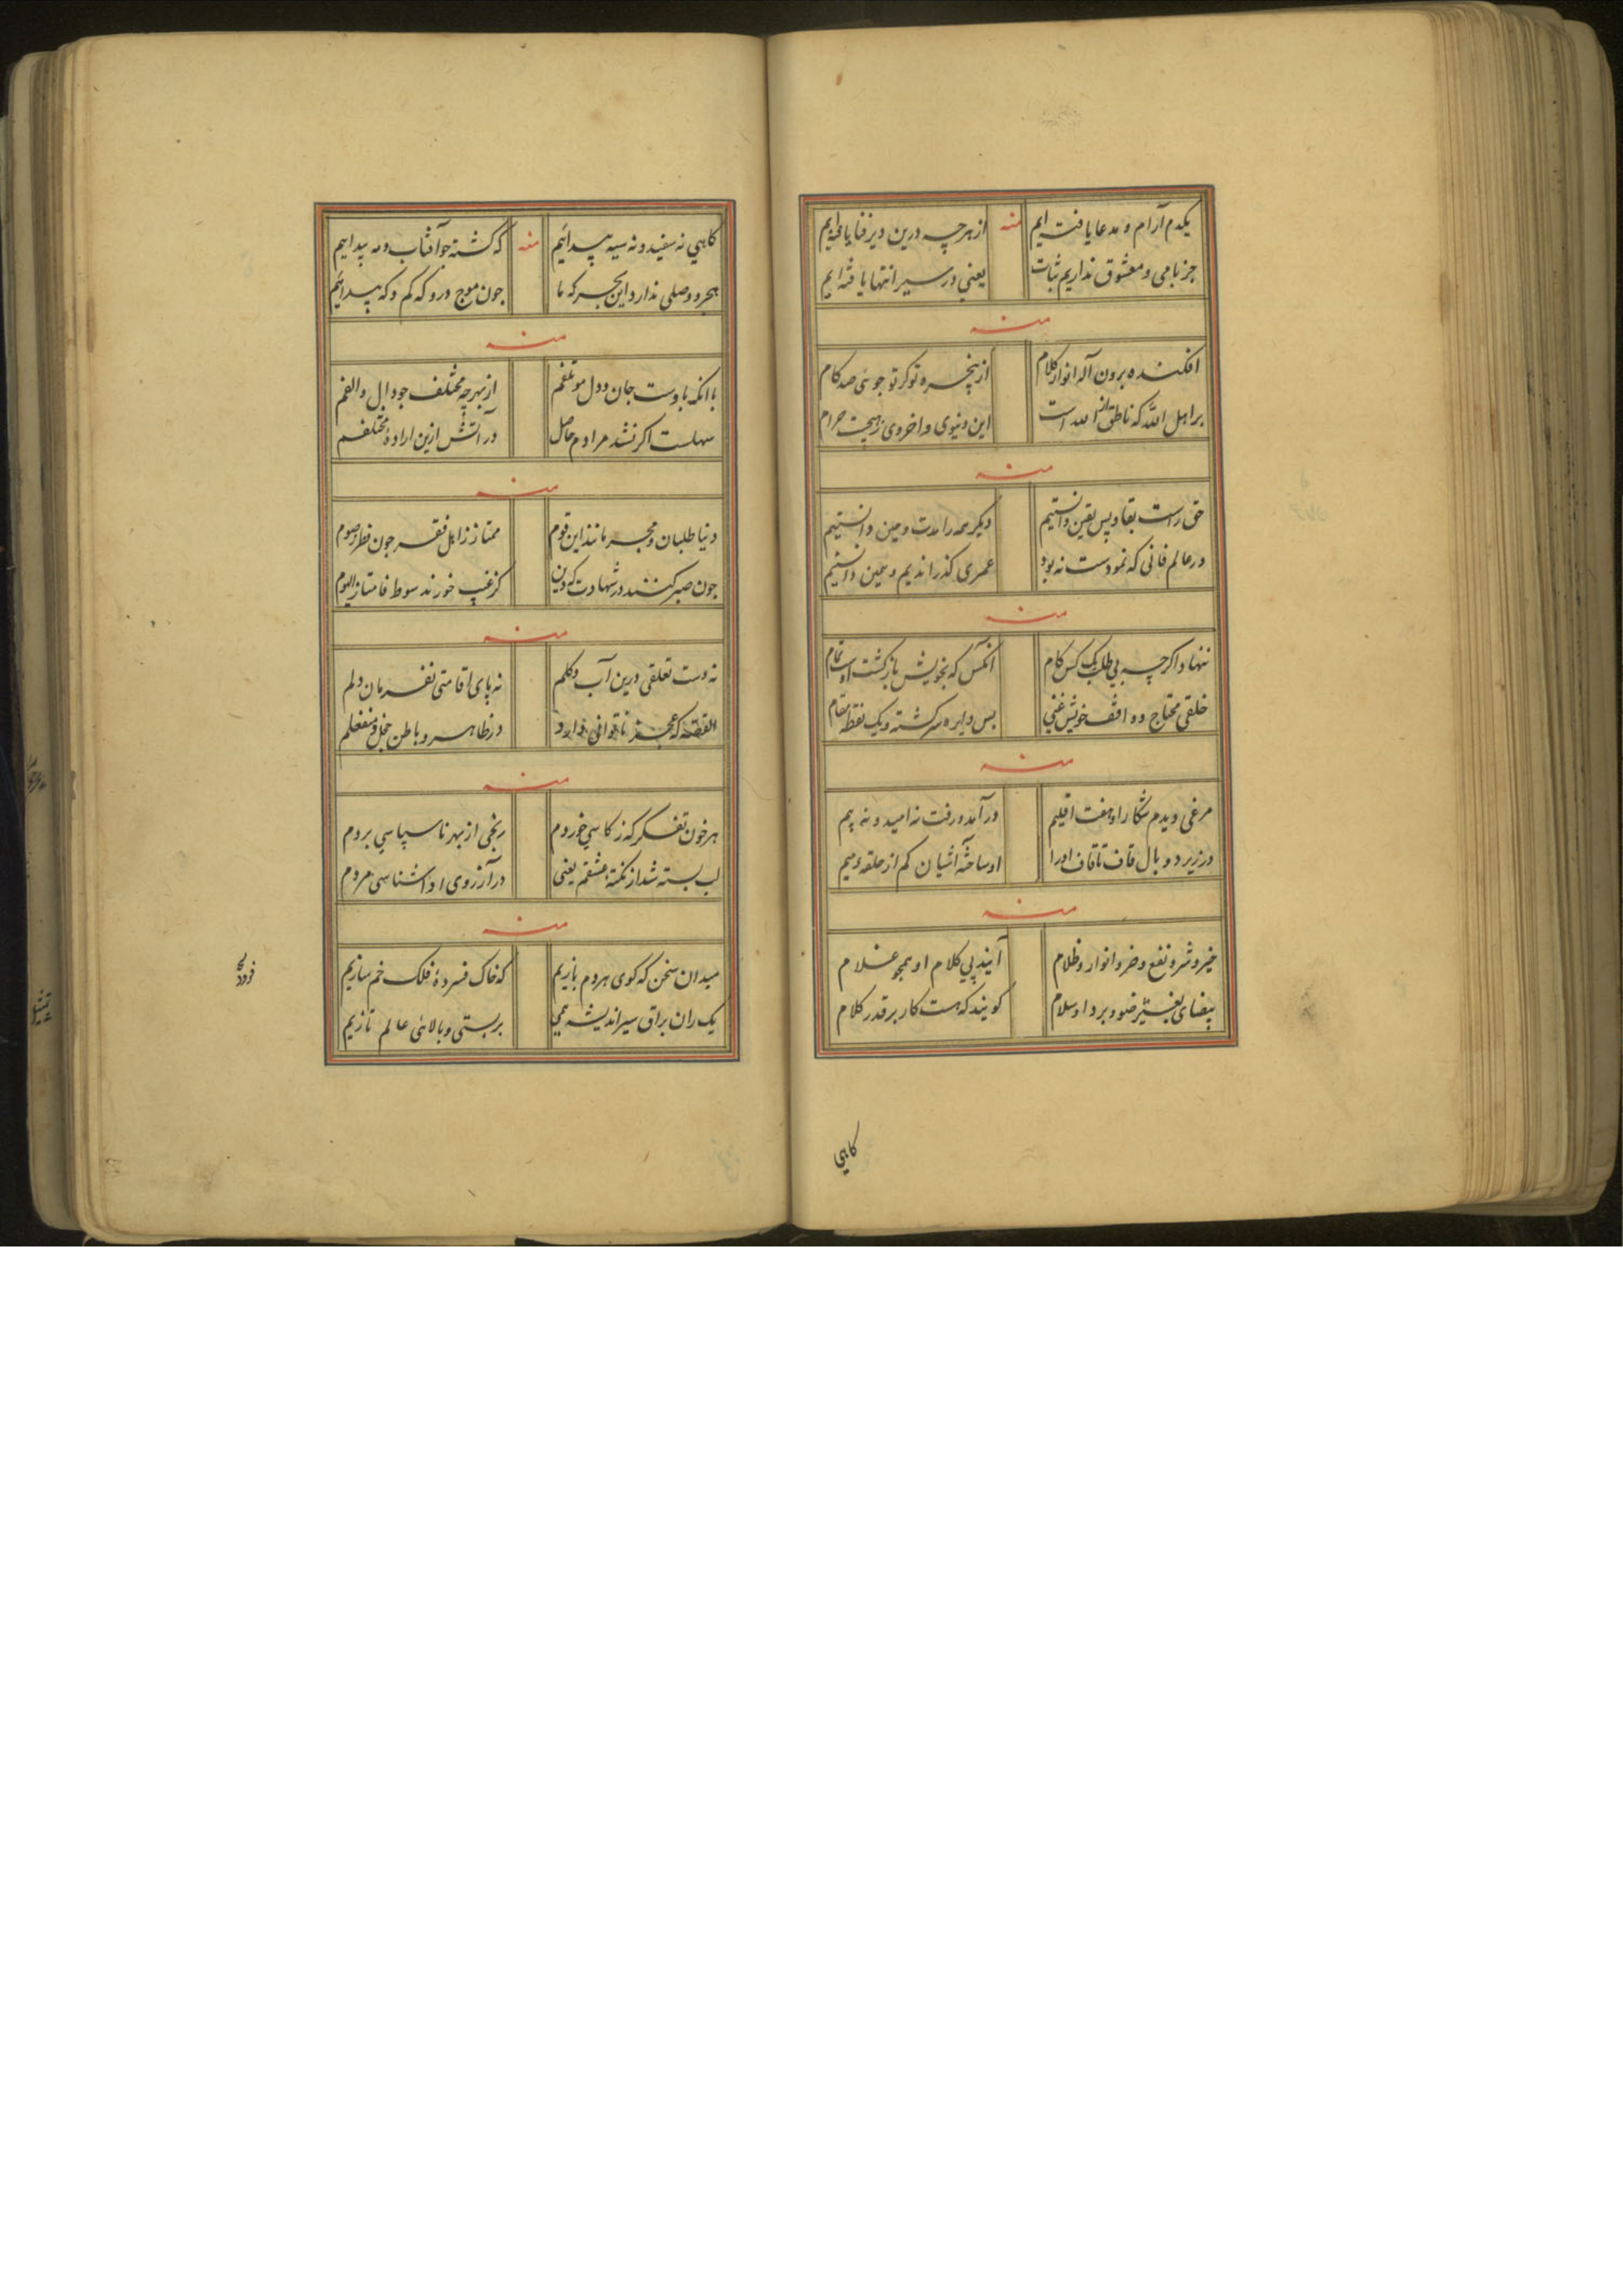 یکدم آرام و مدعا یافته ایم منه از هرچه درین دیر فنا یافته ایم
جز با می و معشوق نداریم ثبات یعنی در سیر انتها یافته ایم
منه
افکنده برون آله انوار کلام از پنجره تو کر تو جوئی صد کام
بر اهل الله که ناطق از الله است این دنیوی و اخروی زهیجت حرام
منه
حق راست بقا و پس یقین دانستیم دیکر همه را مدت و مین دانستیم
در عالم فانی که نمودست نه بود عمری کذراندیم و همین دانستیم
منه
ننهاد اکرچه بی طلب یک کس کام انکس که بخویش بازکشت اوست تمام
خلقی محتاج و واقف خویش غنی بس دایره سرکشته و یک نقطه مقام
منه
مرغی دیدم شکار او هفت اقلیم در آمد و رفت نه امید و نه بیم
در زیر دو بال قاف تا قاف اورا او ساخته آشیان کم از حلقهء میم
منه
خیر و شر و نفع و ضر و انوار و ظلام آیند پی کلام او همچو غلام
کویند که هست کار بر قدر کلام
کاهی
کاهی نه سفید و نه سیه پیدائیم منه که کشته چو آفتاب و مه پیدائیم
هجر و وصلی ندارد این بحر که ما چون موج درو که کم و که پیدائیم
منه
با انکه با دوست جان و دل موتلفم از بهر چه مختلف چو دال و الفم
سهلست اکر نشد مرادم حاصل در آتش ازین ارادهٔ مختلفم
منه
دنیا طلبان و مجرمانند این قوم ممتاز ز اهل فقر چون فطر و صوم
چون صبر کنند در شهادت که دین کز غیب خورند سوط فامتازالیوم
منه
نه دست تعلقی درین آب و کلم نه پای اقامتی بفرمان دلم
القصه که عجز ناتوانی دارد در ظاهر و باطن خجل و منفعلم
منه
هر خون تفکر که ز کاسی خوردم رنجی از بهر ناسپاسی بردم
لب بسته شد از نکتهٔ عشقم یعنی در آرزوی ادا شناسی مردم
منه
میدان سخن که کوی هر دم بازیم که خاک فسردهٔ فلک خم سازیم
یک ران براق سیر اندیشه همی بر پستی و بالائی عالم تازیم